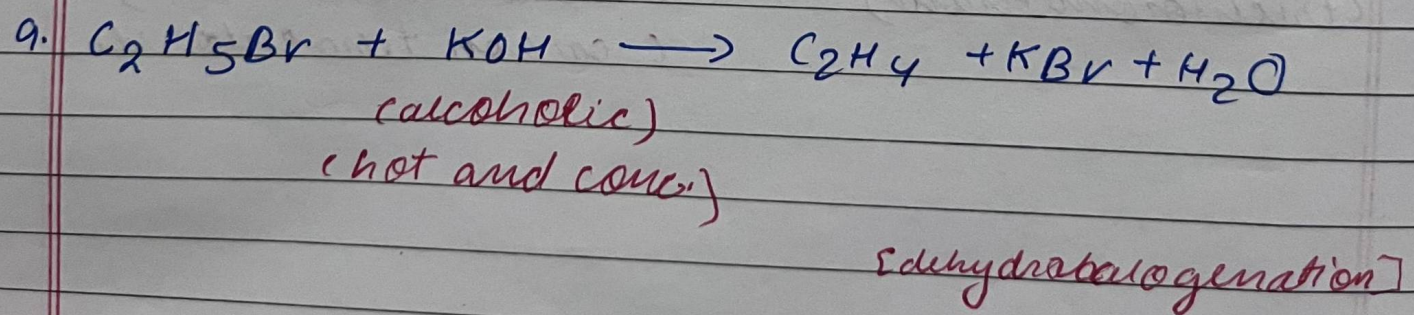 9. C₂H₅Br + KOH ⟶ C₂H₄ + KBr + H₂O
(alcoholic)
(hot and conc.)
[dehydrohalogenation]